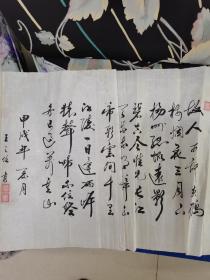 故人西辞黄鹤
楼烟花三月下
扬州孤帆远影
碧空尽唯见长江
天际流朝辞白
帝彩云间千里
江陵一日还两岸
猿声啼不住轻
舟已过万重山
甲戌年 月
王之 书